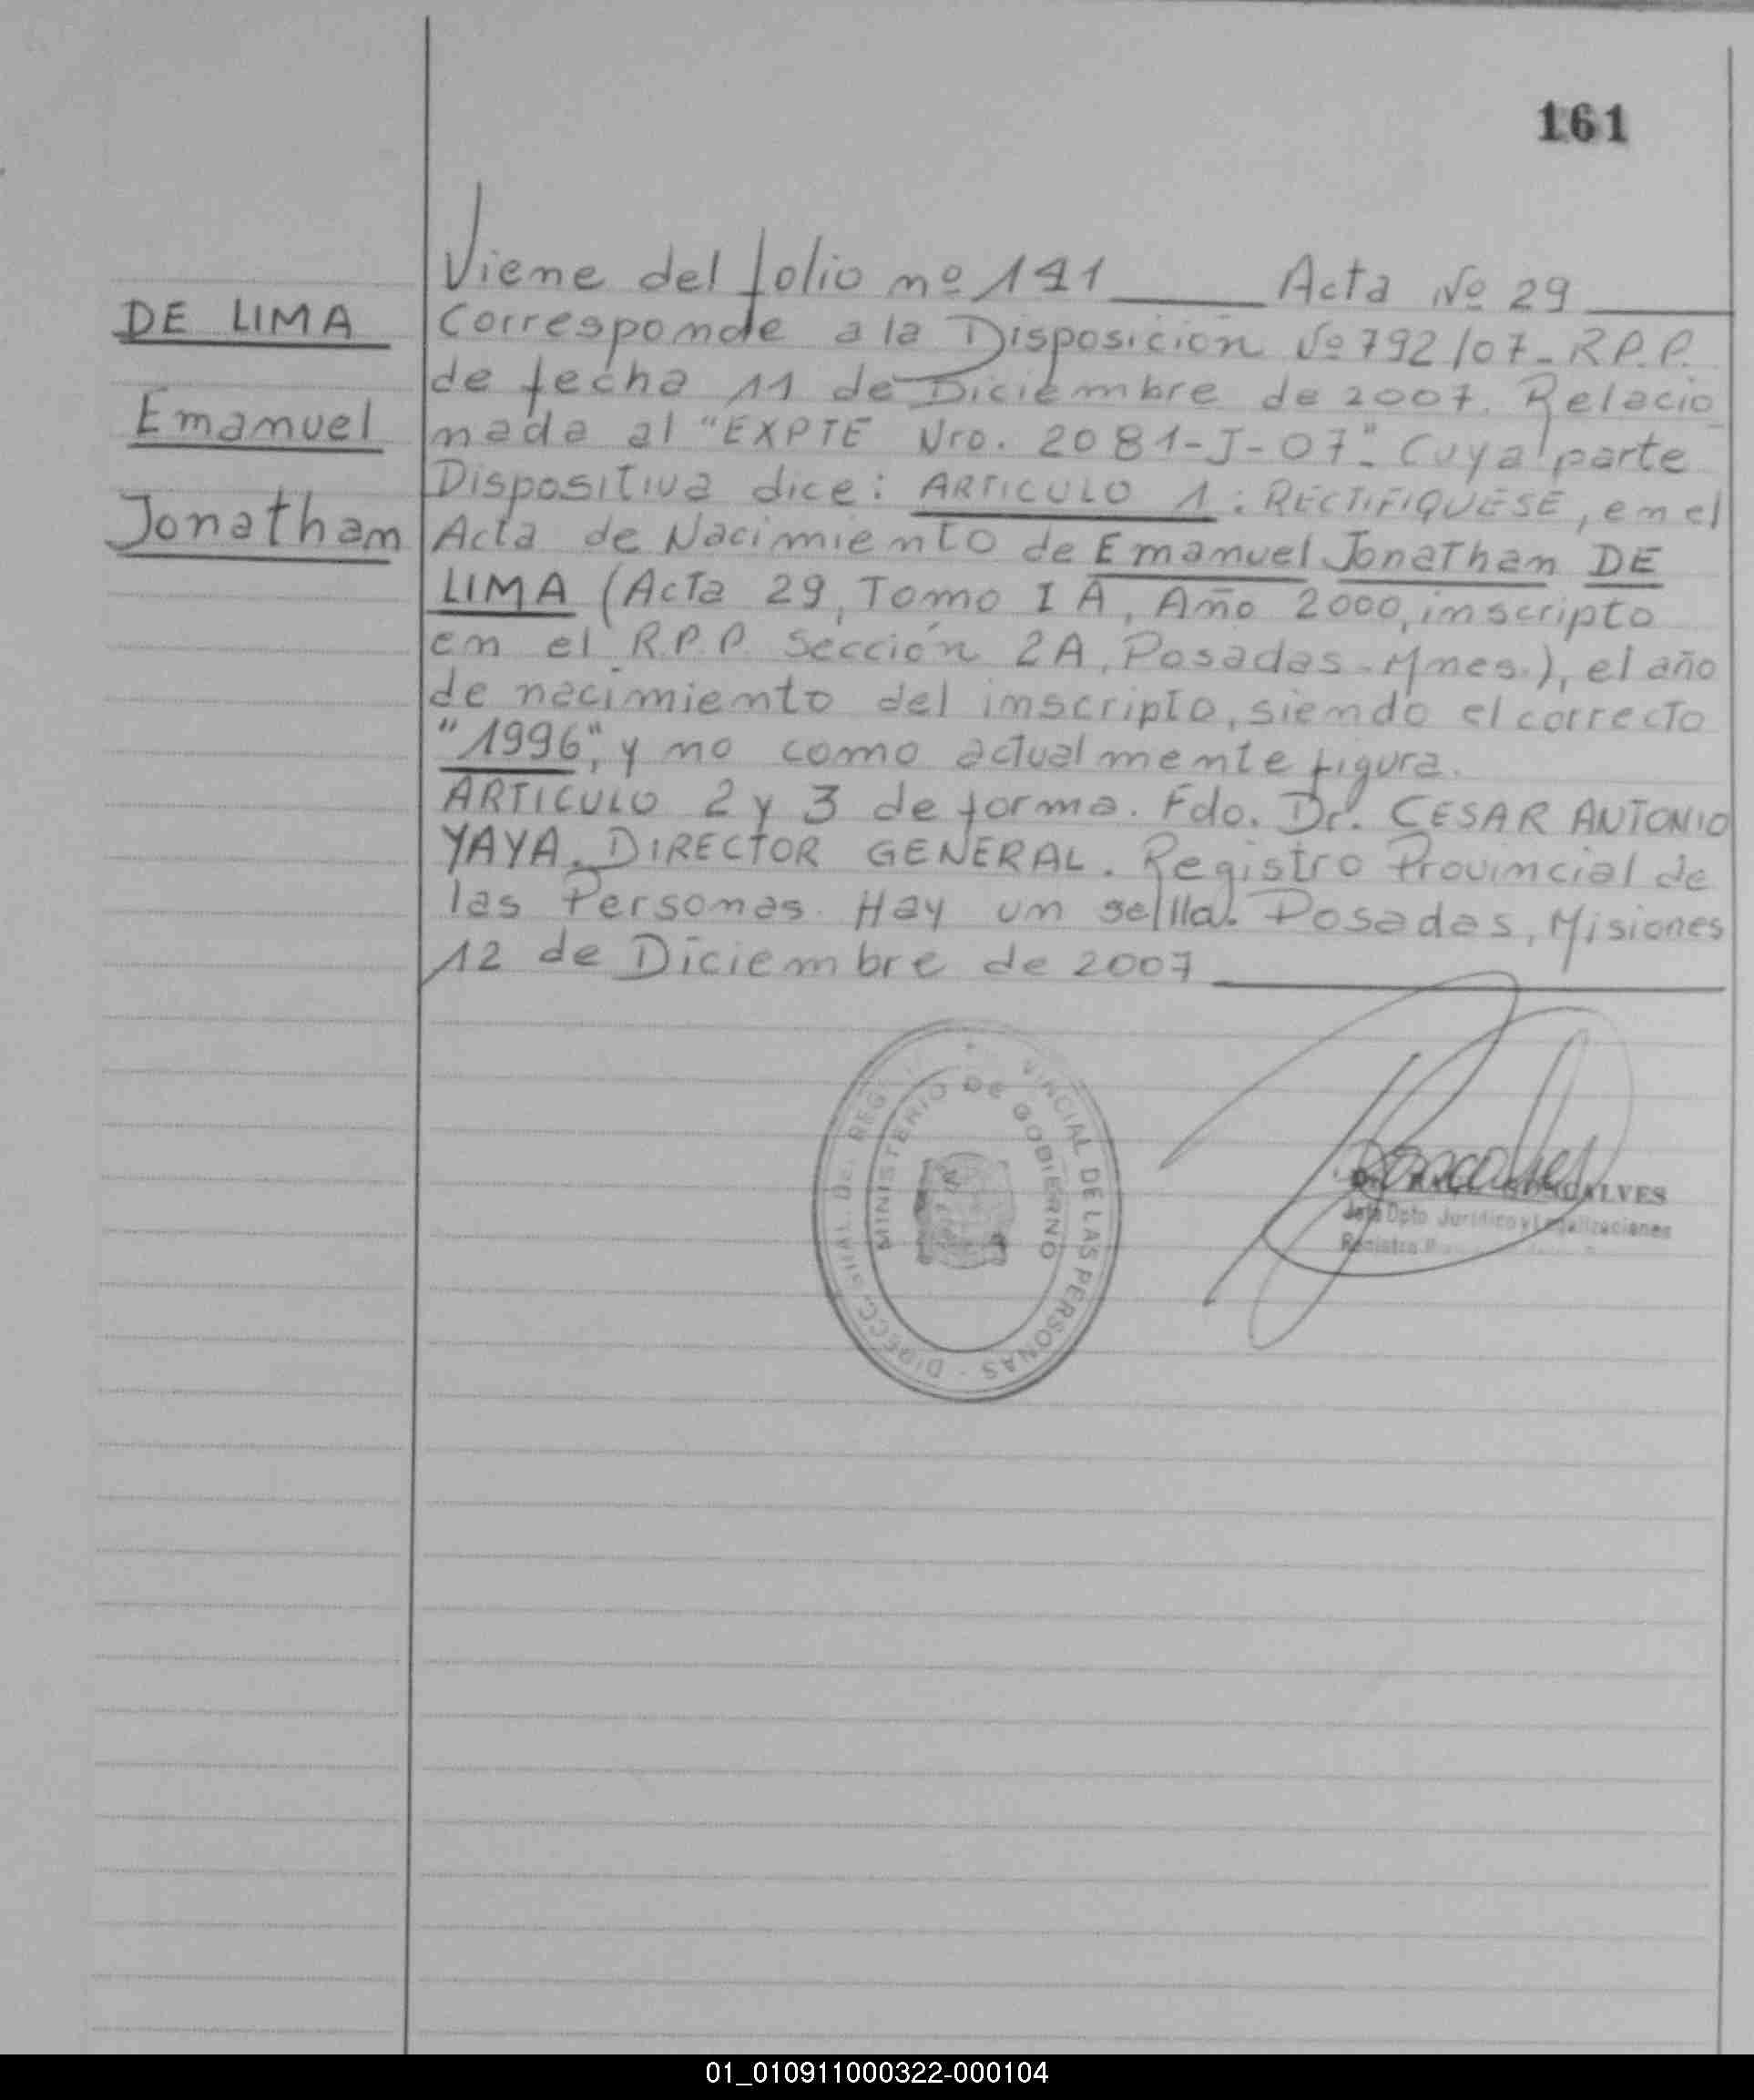 161
Viene del folio nº 141 Acta Nº 29
DE LIMA
Emanuel
Jonatham
Corresponde a la Disposición Nº 792/07- R.P.P.
de fecha 11 de Diciembre de 2007. Relacio
nada al "EXPTE Nro. 2081-J-07". Cuya parte
Dispositiva dice: ARTICULO 1: RECTIFIQUESE, en el
Acta de Nacimiento de Emanuel Jonatham DE
LIMA (Acta 29, Tomo I A, Año 2000, inscripto
en el R.P.P. Sección 2A, Posadas-Mnes.), el año
de nacimiento del inscripto, siendo el correcto
"1996", y no como actualmente figura.
ARTICULO 2 y 3 de forma. Fdo. Dr. CESAR ANTONIO
YAYA. DIRECTOR GENERAL. Registro Provincial de
las Personas. Hay un sello. Posadas, Misiones
12 de Diciembre de 2007
VINCIAL DE LAS PERSONAS - DIRECC
MINISTERIO DE GOBIERNO
GONCALVES
Jefe Dpto Jurídico y Legalizaciones
Registro
01_010911000322-000104